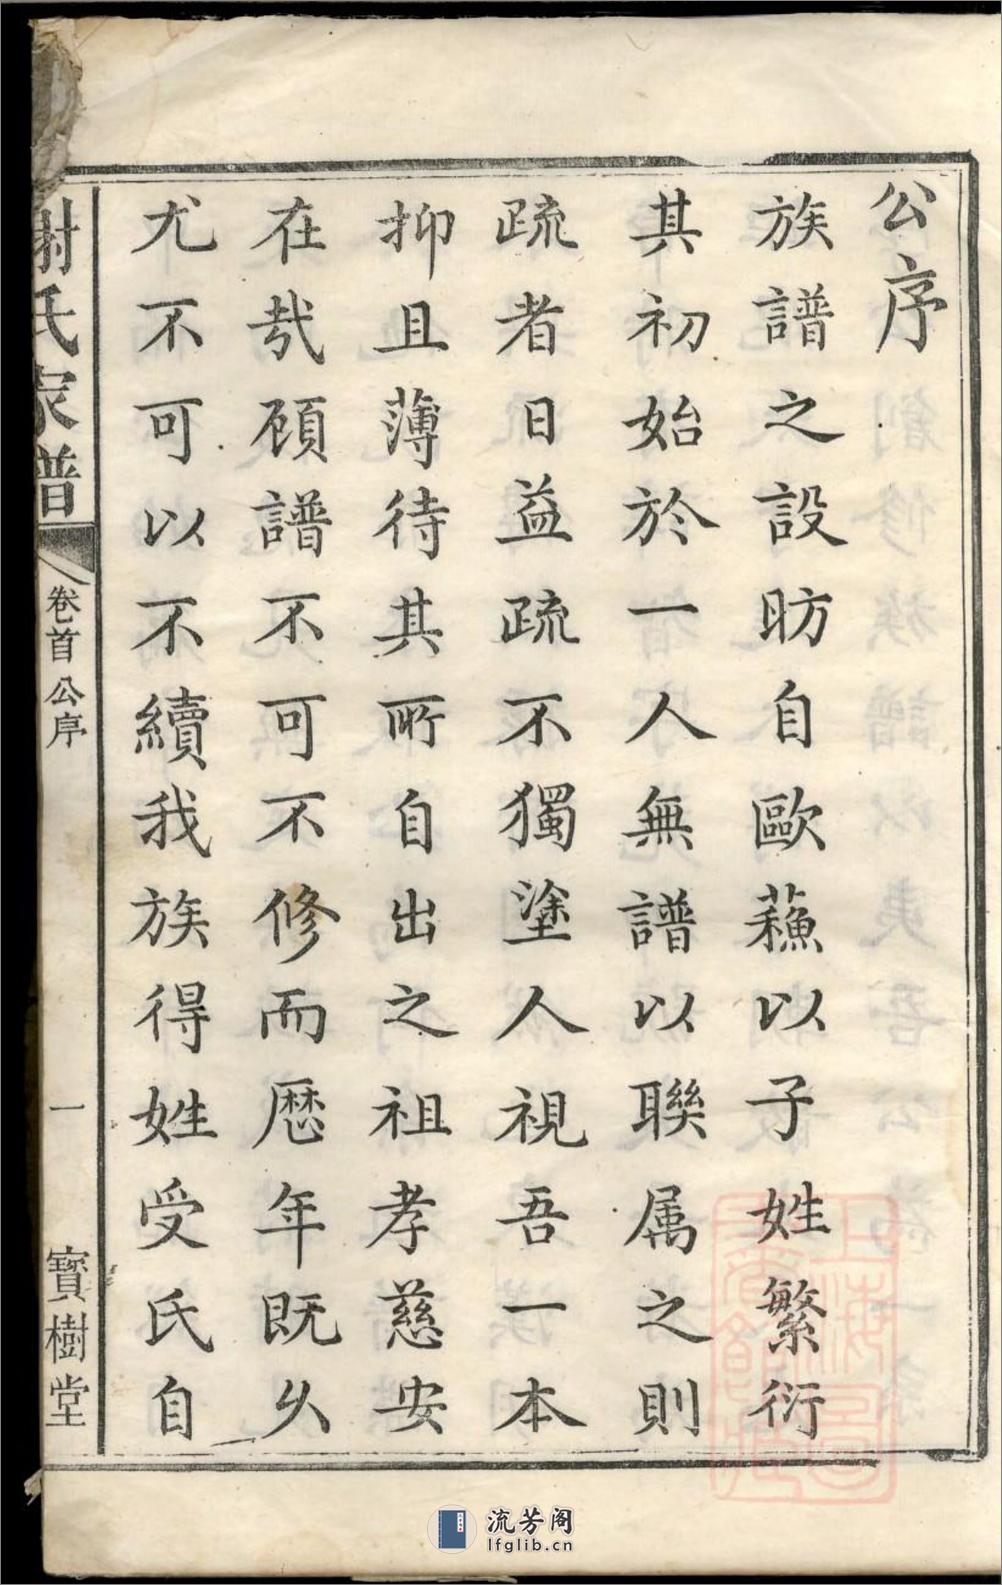 公序
族譜之設昉自歐蘓以子姓繁衍
其初始於一人無譜以聯属之則
疏者日益疏不獨塗人視吾一本
抑且薄待其所自出之祖孝慈安
在㢤顧譜不可不修而厯年既久
尤不可以不續我族得姓受氏自
謝氏家譜
卷首公序
一
寶樹堂
流芳阁
lfglib.cn